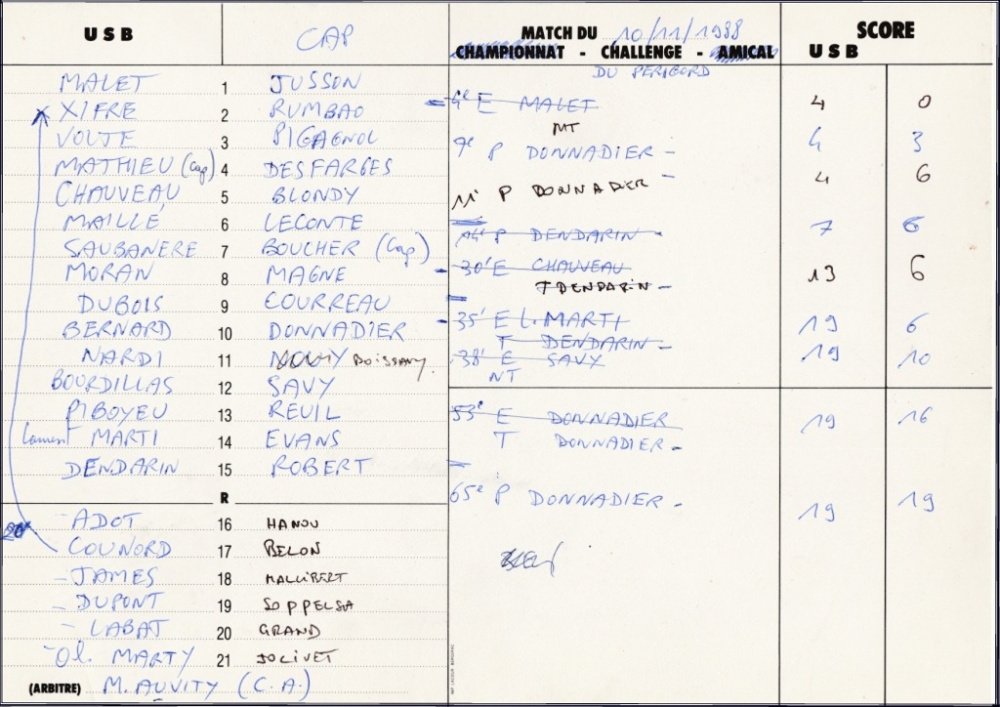 USB CAP MATCH DU 10/11/1988 SCORE
CHAMPIONNAT - CHALLENGE - AMICAL USB
DU PERIGORD
MALET 1 JUSSON
XIFRE 2 RUMBAO
VOLTE 3 PIGAGNOL
MATHIEU (Cap) 4 DESFARGES
CHAUVEAU 5 BLONDY
MAILLÉ 6 LECONTE
SAUBANERE 7 BOUCHER (Cap)
MORAN 8 MAGNE
DUBOIS 9 COURREAU
BERNARD 10 DONNADIER
NARDI 11 BOISSAVY
BOURDILLAS 12 SAVY
PIBOYEU 13 REUIL
Laurent MARTI 14 EVANS
DENDARIN 15 ROBERT
R
- ADOT 16 HANOU
20e COUNORD 17 BELON
- JAMES 18 MALLIBERT
- DUPONT 19 SOPPELSA
- LABAT 20 GRAND
- Ol. MARTY 21 JOLIVET
(ARBITRE) M. AUVITY (C.A.)
4e E MALET 4 0
MT
9e P DONNADIER - 4 3
11' P DONNADIER - 4 6
14' P DENDARIN - 7 6
30' E CHAUVEAU 13 6
T DENDARIN -
35' E L. MARTI 19 6
T DENDARIN -
38' E SAVY 19 10
NT
53e E DONNADIER 19 16
T DONNADIER -
65e P DONNADIER - 19 19